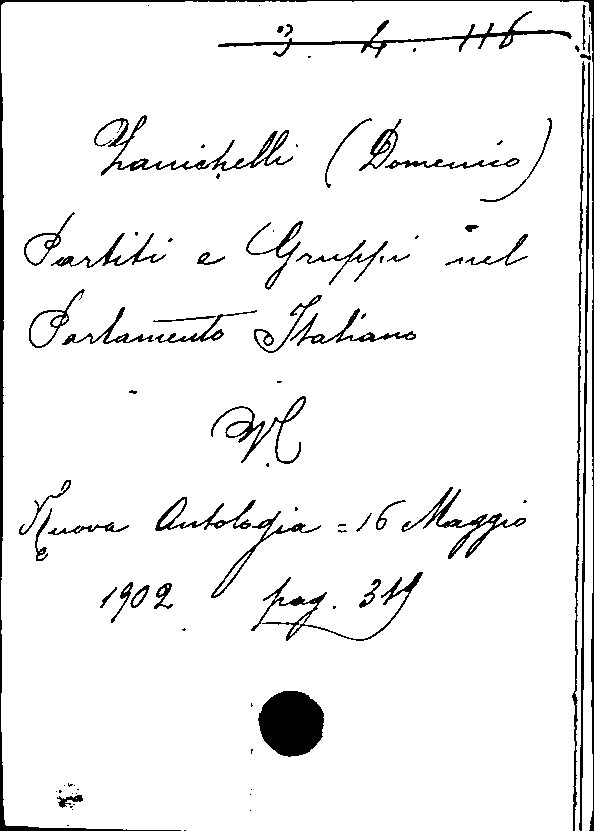 3. 4. 116
Zanichelli (Domenico)
Partiti e Gruppi nel
Parlamento Italiano
V.C
Nuova Antologia = 16 Maggio
1902 pag. 319